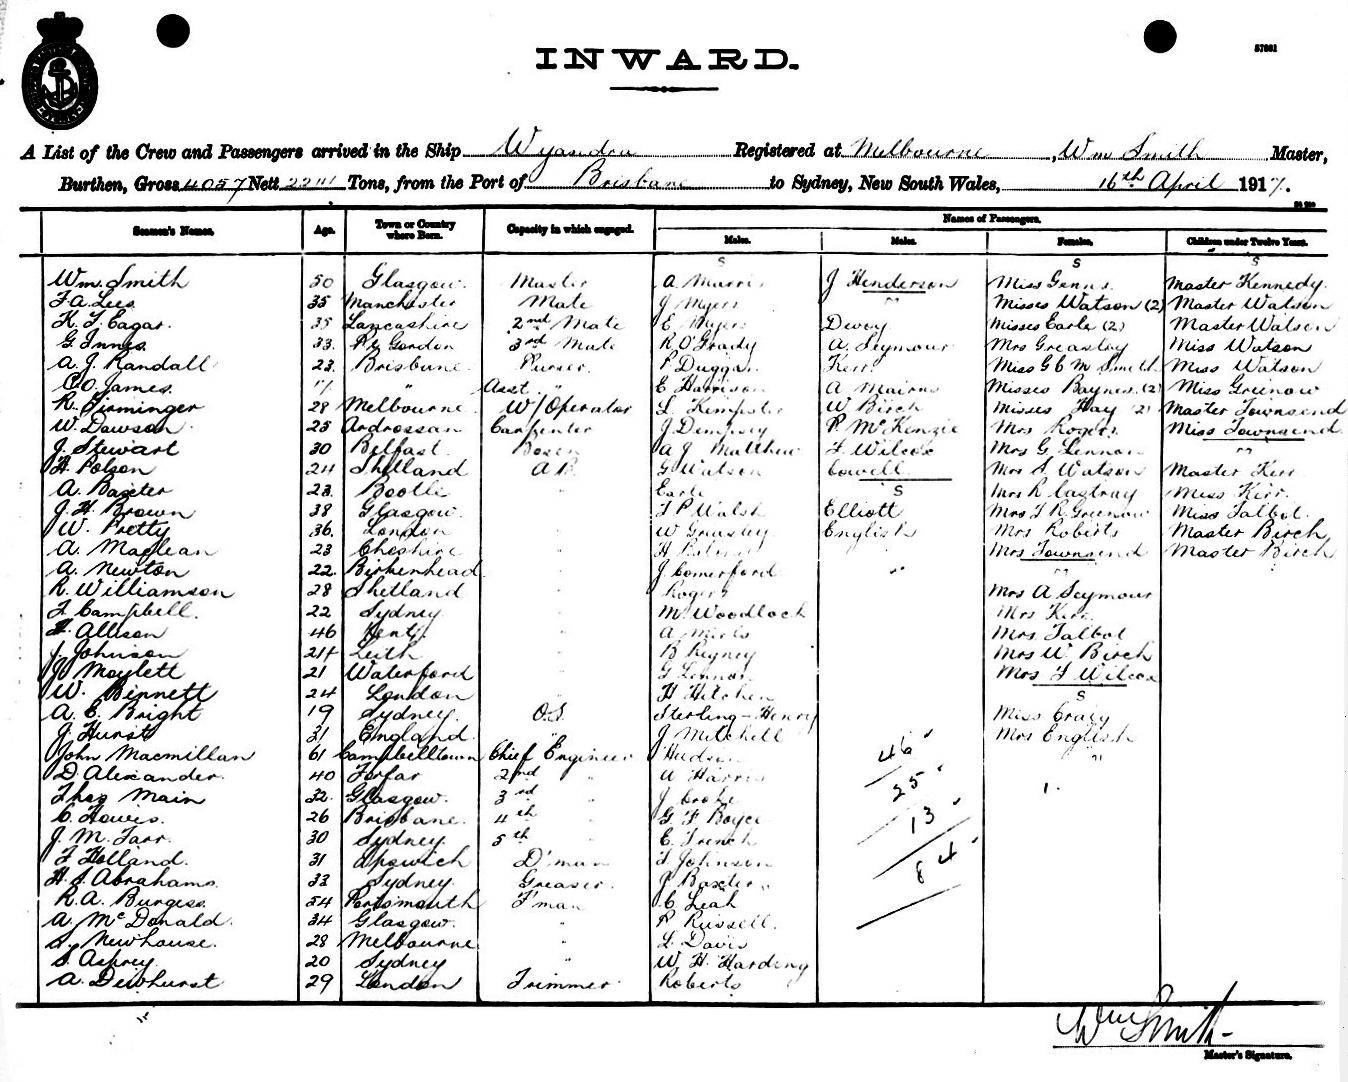 57801
INWARD.
A List of the Crew and Passengers arrived in the Ship Wyandra Registered at Melbourne, Wm Smith Master,
Burthen, Gross 4057 Nett 2211 Tons, from the Port of Brisbane to Sydney, New South Wales, 16th April 1917.
Names of Passengers.
Seamen's Names. Age. Town or Country where Born. Capacity in which engaged. Males. Males. Females. Children under Twelve Years.
S S S
Wm Smith 50 Glasgow. Master A Marris J Henderson Miss Genns Master Kennedy.
F. A. Lees 35 Manchester Mate J Myers Misses Watson (2) Master Watson
K. T. Eagar. 35 Lancashire 2nd Mate E Myers Devoy Misses Earle (2) Master Watson
G. Innes. 33. Gordon 3rd Mate R O'Grady A. Seymour Mrs Greasley Miss Watson
A. J. Randall 23. Brisbane Purser. P Duggan Kerr Miss G & M Smith Miss Watson
C. O. James. " Asst " E Harrison A Mairns Misses Baynes (2) Miss Greenow
R. Girminger 28 Melbourne W/Operator L. Kempster W Birch Misses Hay (2) Master Townsend
W. Dawson 25 Ardrossan Carpenter J Dempsey R McKenzie Mrs Rogers Miss Townsend
J. Stewart 30 Belfast Bosun A J Matthew F Wilcox Mrs G. Lennon
H Polson 24 Shetland A.B. G Watson Cowell Mrs S. Watson Master Kerr
A. Baxter 23. Bootle " Earle S Mrs R Castray Miss Kerr.
J. H. Brown 38 Glasgow " T P Walsh Elliott Mrs F R Greenow Miss Talbot.
W. Pretty 36. London " W Greasley English Mrs Roberts Master Birch
A. Maclean 23 Cheshire " H Mrs Townsend Master Birch
A. Newton 22. Birkenhead " J Comerford
R. Williamson 28 Shetland " Rogers Mrs A Seymour
F Campbell. 22 Sydney. " M Woodlock Mrs Kerr
Allison 46 Kent " A Mrs Talbot
J. Johnson 24 Leith " B Regney Mrs W. Birch
J Moylett 21 Waterford " G Lennon Mrs F Wilcox
W. Bennett 24 London " H Hitchen S
A. E. Bright 19 Sydney. O.S. Sterling-Henry Miss Craig
J. Hurst 21 England. " J Mitchell Mrs English
John Macmillan 61 Campbelltown Chief Engineer Hudson 46
D. Alexander. 40 Forfar 2nd " W Harris 25
Thos Main 32. Glasgow. 3rd " J Croke 1.
C. Howes. 26 Brisbane. 4th " G F Boyce 13
J. M. Tarr. 30 Sydney. 5th " E French
F Holland. 31 Ipswich D'man F. Johnson 84
H. S. Abrahams. 33 Sydney. Greaser. J Baxter
R. A. Burgess. 54 Portsmouth F'man C Leah
A. McDonald. 34 Glasgow. " P Russell.
S. Newhouse. 28 Melbourne " L. Davis
S. Asprey. 20 Sydney " W. H. Harding
A. Dewhurst 29 London Trimmer Roberts
Wm Smith
Master's Signature.